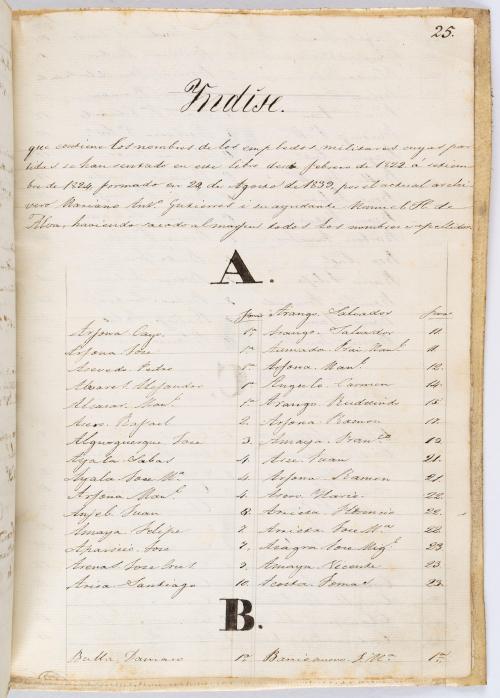 25.
Yndise.
que contiene los nombres de los empleados militares cuyas par
tidas se han sentado en este libro desde febrero de 1822 á setiem
bre de 1824, formado en 22 de Agosto de 1839, por el actual archi
vero Mariano Ant.º Gutierrez i su ayudante Manuel de
haviendo sacado al margen todos los nombres i apellidos.
A.
Arjona Cayo. 1.º Arango Salvador 11.
Arjona Jose 1.º Ahumada Man.l 11.
Acevedo Pedro 1.º Arjona Man.l 12.
Alvarez Alejandro 1.º Angulo Carmen 14.
Alcazar Man.l 1.º Arango Rudecindo 15.
Arce Rafael 2. Arjona Ramon
Alquoquerque Jose 3. Amaya Fran.co 19.
Ayala Sabas 4. Arce Juan 21.
Ayala Jose M.a 4. Arjona Ramon 21.
Arjona Man.l 4. 22.
Anjel Juan 6. Arrieta 22.
Amaya Felipe 7. Arrieta Jose M.a 22.
Aparicio Jose 7. Azagra Jose Mig.l 23
Arenal Jose 9. Amaya Vicente 23.
Arisa Santiago 10. Acosta Tomas 23.
B.
Balla Damaso 1.º J. M.a 1.º